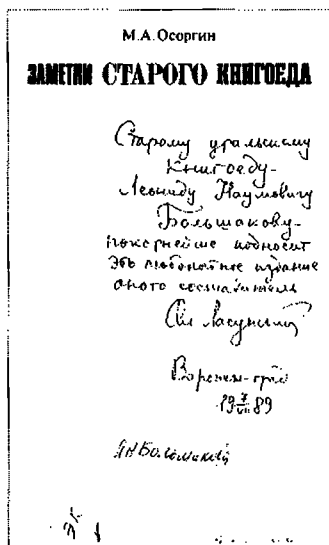 М.А. Осоргин
ЗАМЕТКИ СТАРОГО КНИГОЕДА
Старому уральскому
книгоеду-
Леониду Наумовичу
Большакову-
покорнейше подносит
это любопытное издание
оного составитель
Ол Ласунский
Воронеж-град
19 7/VII 89
ЛНБольшаков